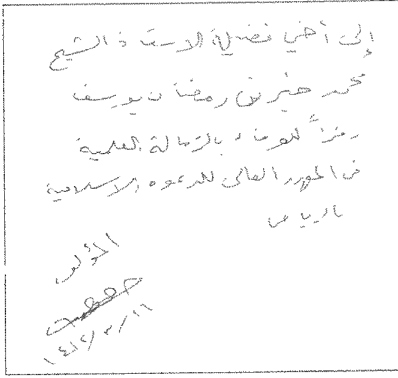 إلى أخي فضيلة الاستاذ الشيخ
محمد خير رمضان يوسف
رمزاً للوفاء بالزمالة العلمية
في المعهد العالى للدعوه الاسلامية
بالرياض
المؤلف